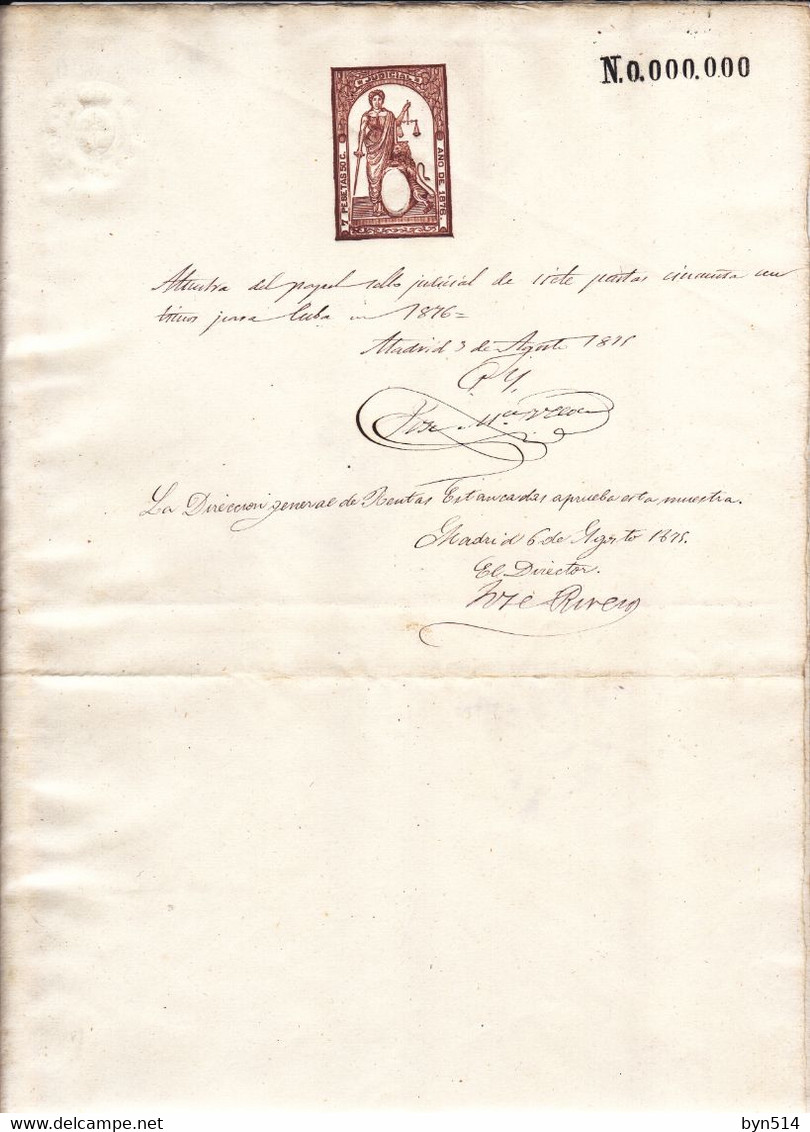 N.0.000.000
JUDICIAL
7 PESETAS 50 C.
AÑO DE 1876.
Muestra del papel sello judicial de siete pesetas cincuenta cen
timos para Cuba en 1876=
Madrid 3 de Agosto 1875
José Mª
La Direccion general de Rentas Estancadas aprueba esta muestra.
Madrid 6 de Agosto 1875.
El Director.
José Rivero
byn514